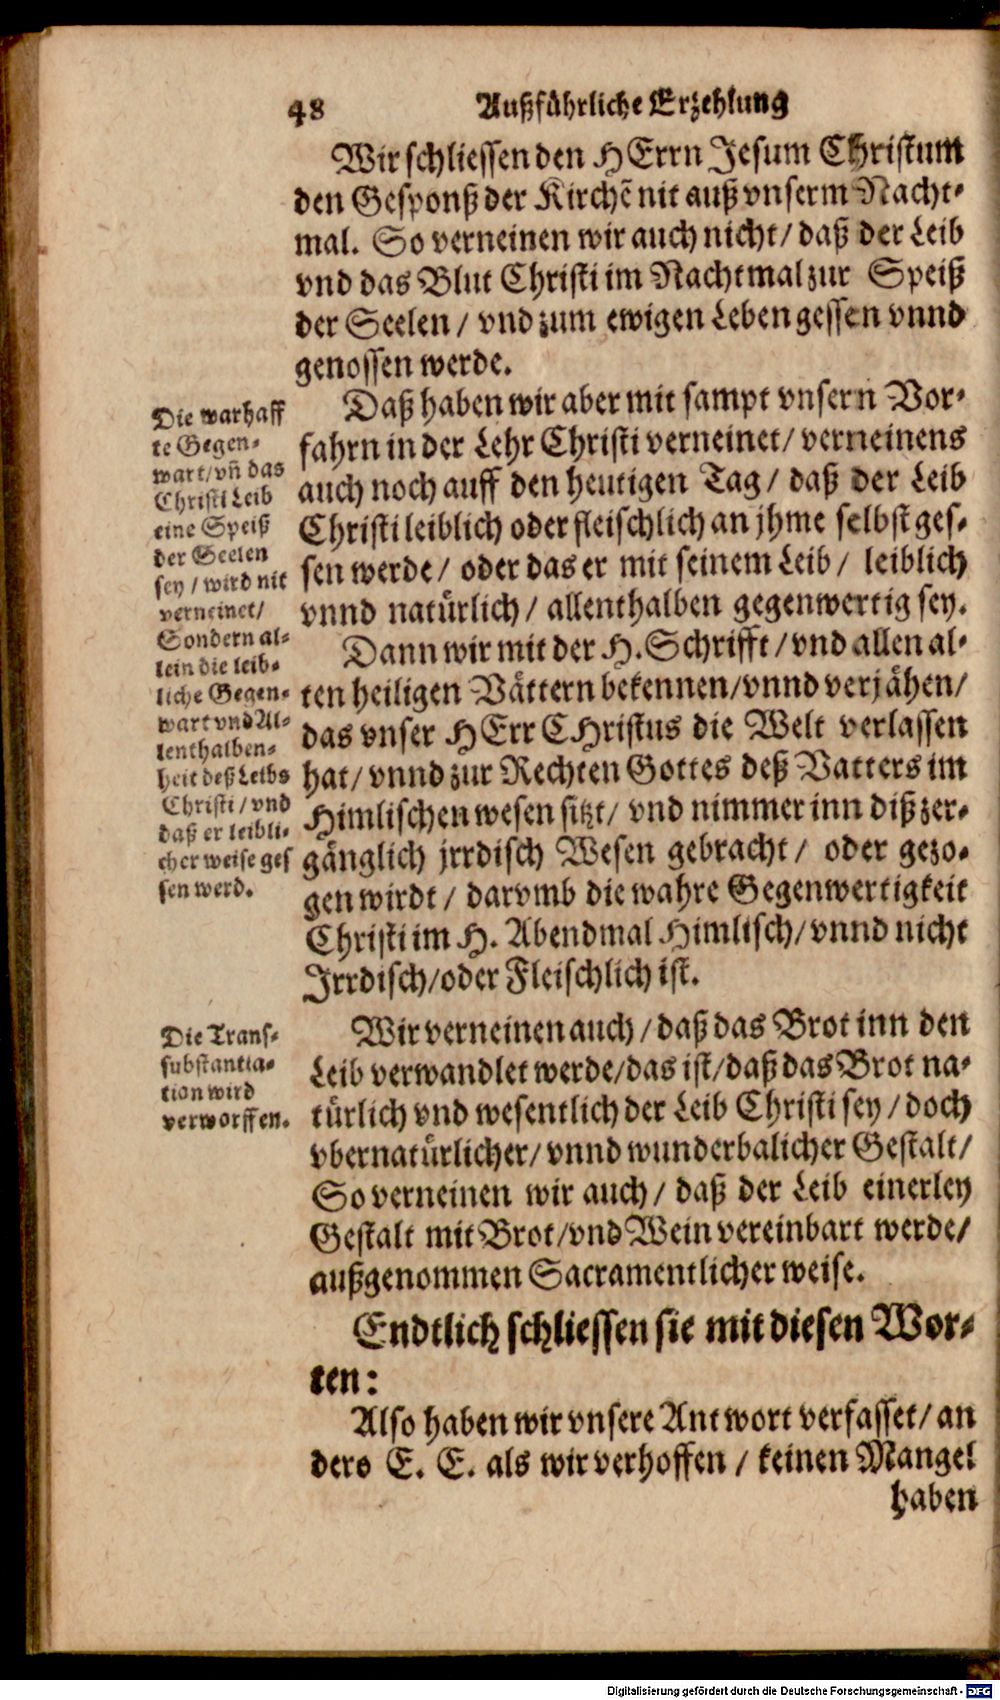 48 Außführliche Erzehlung
Wir schliessen den HErrn Jesum Christum
den Gesponß der Kirchẽ nit auß vnserm Nacht-
mal. So verneinen wir auch nicht/ daß der Leib
vnd das Blut Christi im Nachtmal zur Speiß
der Seelen/ vnd zum ewigen Leben gessen vnnd
genossen werde.
Daß haben wir aber mit sampt vnsern Vor-
fahrn in der Lehr Christi verneinet/ verneinens
auch noch auff den heutigen Tag/ daß der Leib
Christi leiblich oder fleischlich an jhme selbst ges-
sen werde/ oder das er mit seinem Leib/ leiblich
vnnd natürlich/ allenthalben gegenwertig sey.
Die warhaff
te Gegen-
wart/ vñ das
Christi Leib
eine Speiß
der Seelen
sey/ wird nit
verneinet/
Sondern al-
lein die leib-
liche Gegen-
wart vnd Al-
lenthalben-
heit deß Leibs
Christi/ vnd
daß er leibli-
cher weise ges
sen werd.
Dann wir mit der H. Schrifft/ vnd allen al-
ten heiligen Vättern bekennen/ vnnd verjähen/
das vnser HErr CHristus die Welt verlassen
hat/ vnnd zur Rechten Gottes deß Vatters im
Himlischen wesen sitzt/ vnd nimmer inn diß zer-
gänglich jrrdisch Wesen gebracht/ oder gezo-
gen wirdt/ darvmb die wahre Gegenwertigkeit
Christi im H. Abendmal Himlisch/ vnnd nicht
Irrdisch/ oder Fleischlich ist.
Wir verneinen auch/ daß das Brot inn den
Leib verwandlet werde/ das ist/ daß das Brot na-
türlich vnd wesentlich der Leib Christi sey/ doch
vbernatürlicher/ vnnd wunderbalicher Gestalt/
So verneinen wir auch/ daß der Leib einerley
Gestalt mit Brot/ vnd Wein vereinbart werde/
außgenommen Sacramentlicher weise.
Die Trans-
substantia-
tion wird
verworffen.
Endtlich schliessen sie mit diesen Wor-
ten:
Also haben wir vnsere Antwort verfasset/ an
dero E. E. als wir verhoffen/ keinen Mangel
haben
Digitalisierung gefördert durch die Deutsche Forschungsgemeinschaft - DFG